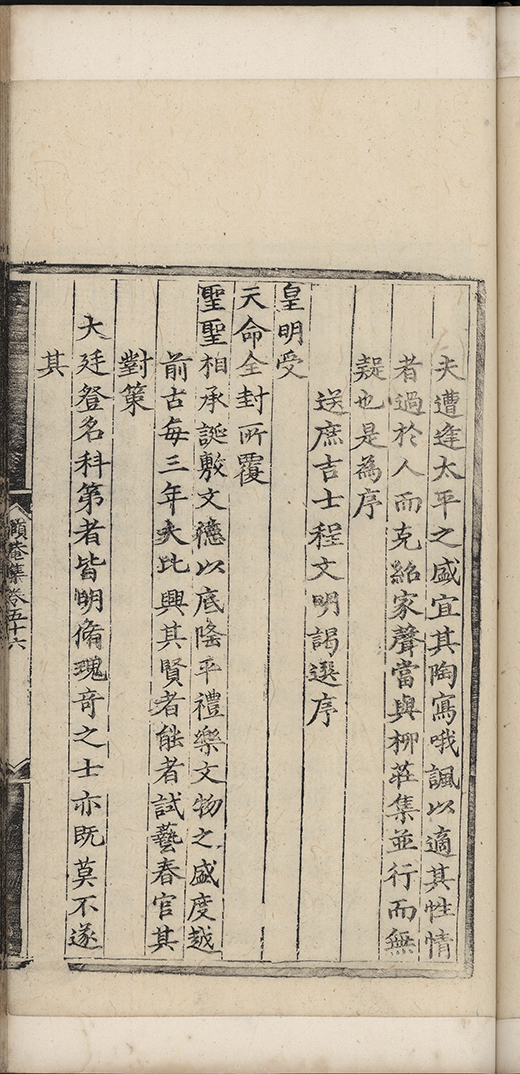 夫遭逢太平之盛宜其陶寫哦諷以適其性情
者過於人而克紹家聲當與柳莊集並行而無
疑也是為序
送庶吉士程文明謁選序
皇明受
天命全封所覆
聖聖相承誕敷文德以底隆平禮樂文物之盛度越
前古每三年大比興其賢者能者試藝春官其
對策
大廷登名科第者皆明脩瑰竒之士亦既莫不遂
其
頤菴集卷五十六